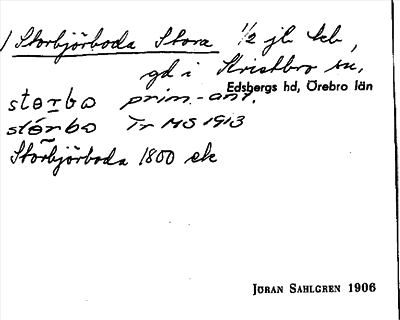 Storbjörboda Stora 1/2 jb
gd i Kristbro sn,
Edsbergs hd, Örebro län
storbo prim.-ant.
störbo Tr MS 1913
Storbjörboda 1800 ek
JÖRAN SAHLGREN 1906